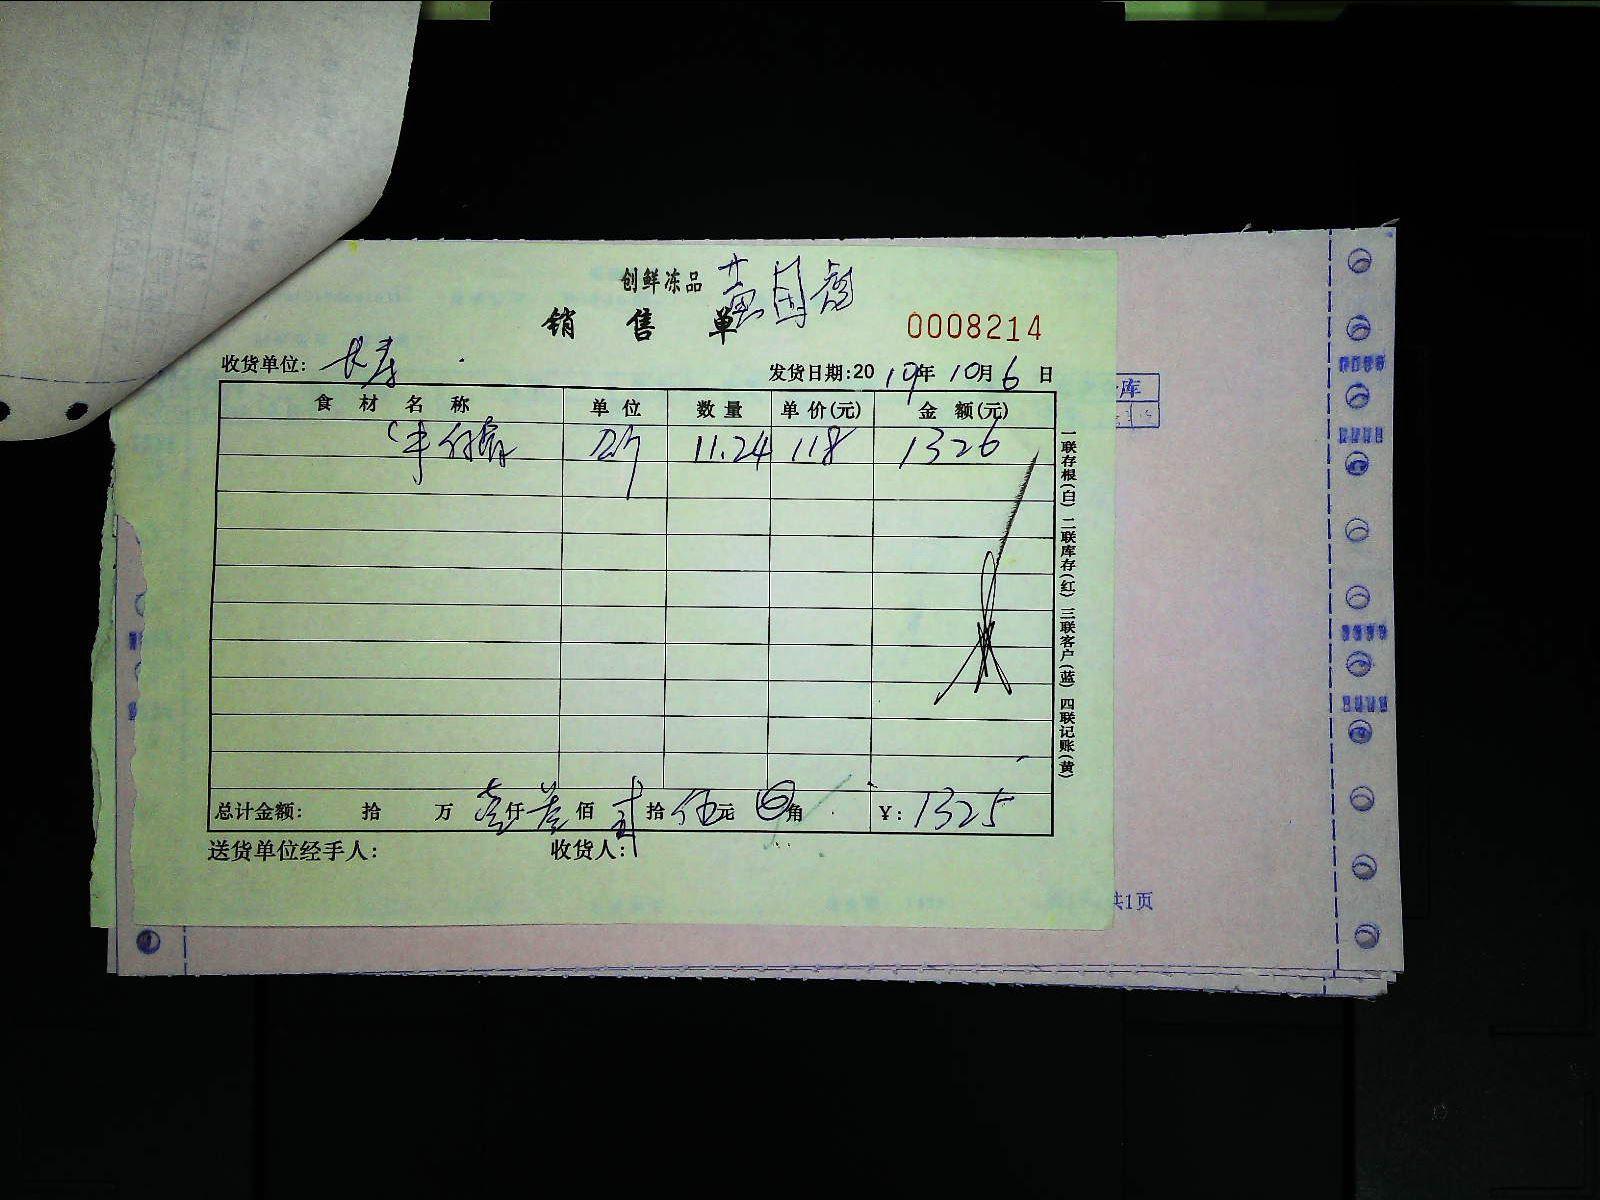 创鲜冻品 黄国富
销售单
0008214
收货单位: 长寿
发货日期:2019年10月6日
食材名称 单位 数量 单价(元) 金额(元)
11.24 118 1326
总计金额: 拾 万 壹仟叁佰贰拾伍元 角 ¥:1325
送货单位经手人: 收货人:
一联存根(白) 二联库存(红) 三联客户(蓝) 四联记账(黄)
库
共1页